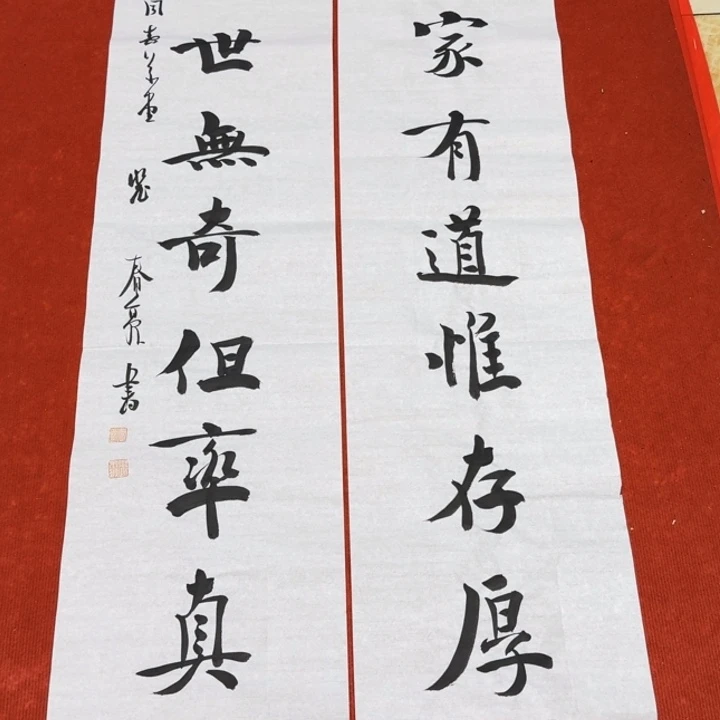 家有道惟存厚
世無奇但率真
鑒 春亮書